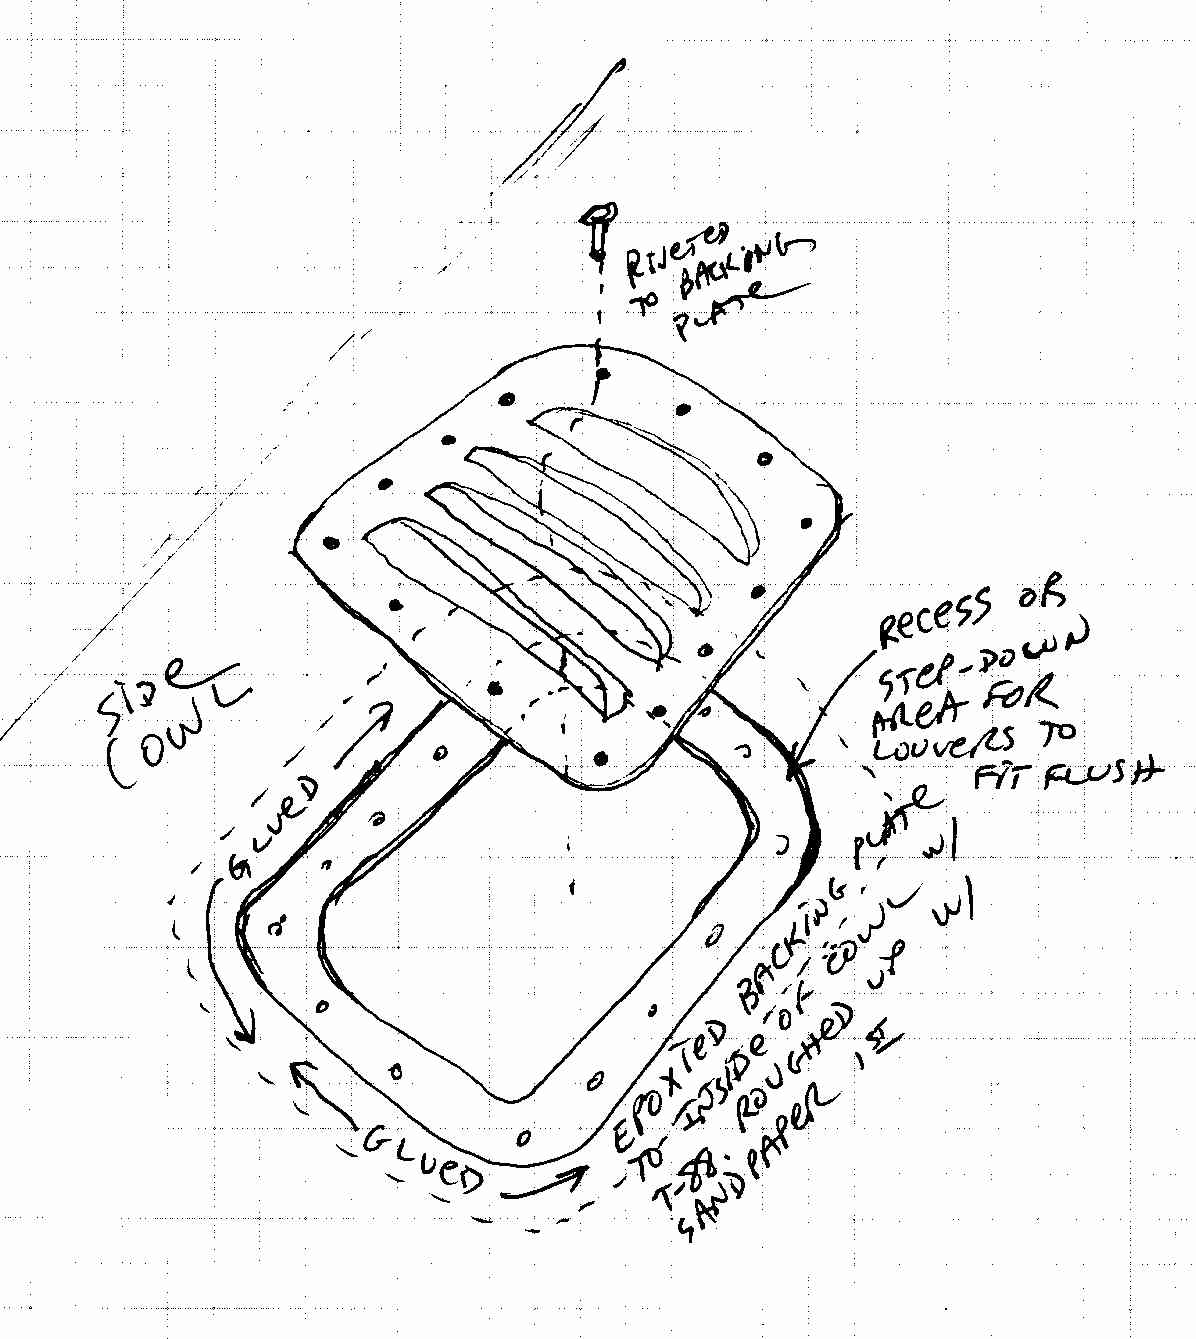 RIVETED
TO BACKING
PLATE
RECESS OR
STEP-DOWN
AREA FOR
LOUVERS TO
FIT FLUSH
SIDE
COWL
GLUED
GLUED
EPOXIED BACKING PLATE
TO INSIDE OF COWL W/
T-88. ROUGHED UP W/
SANDPAPER 1ST